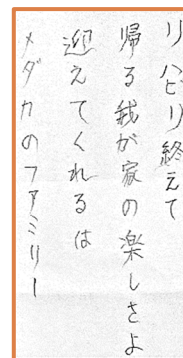 リハビリ終えて
帰る我が家の楽しさよ
迎えてくれるは
メダカのファミリー